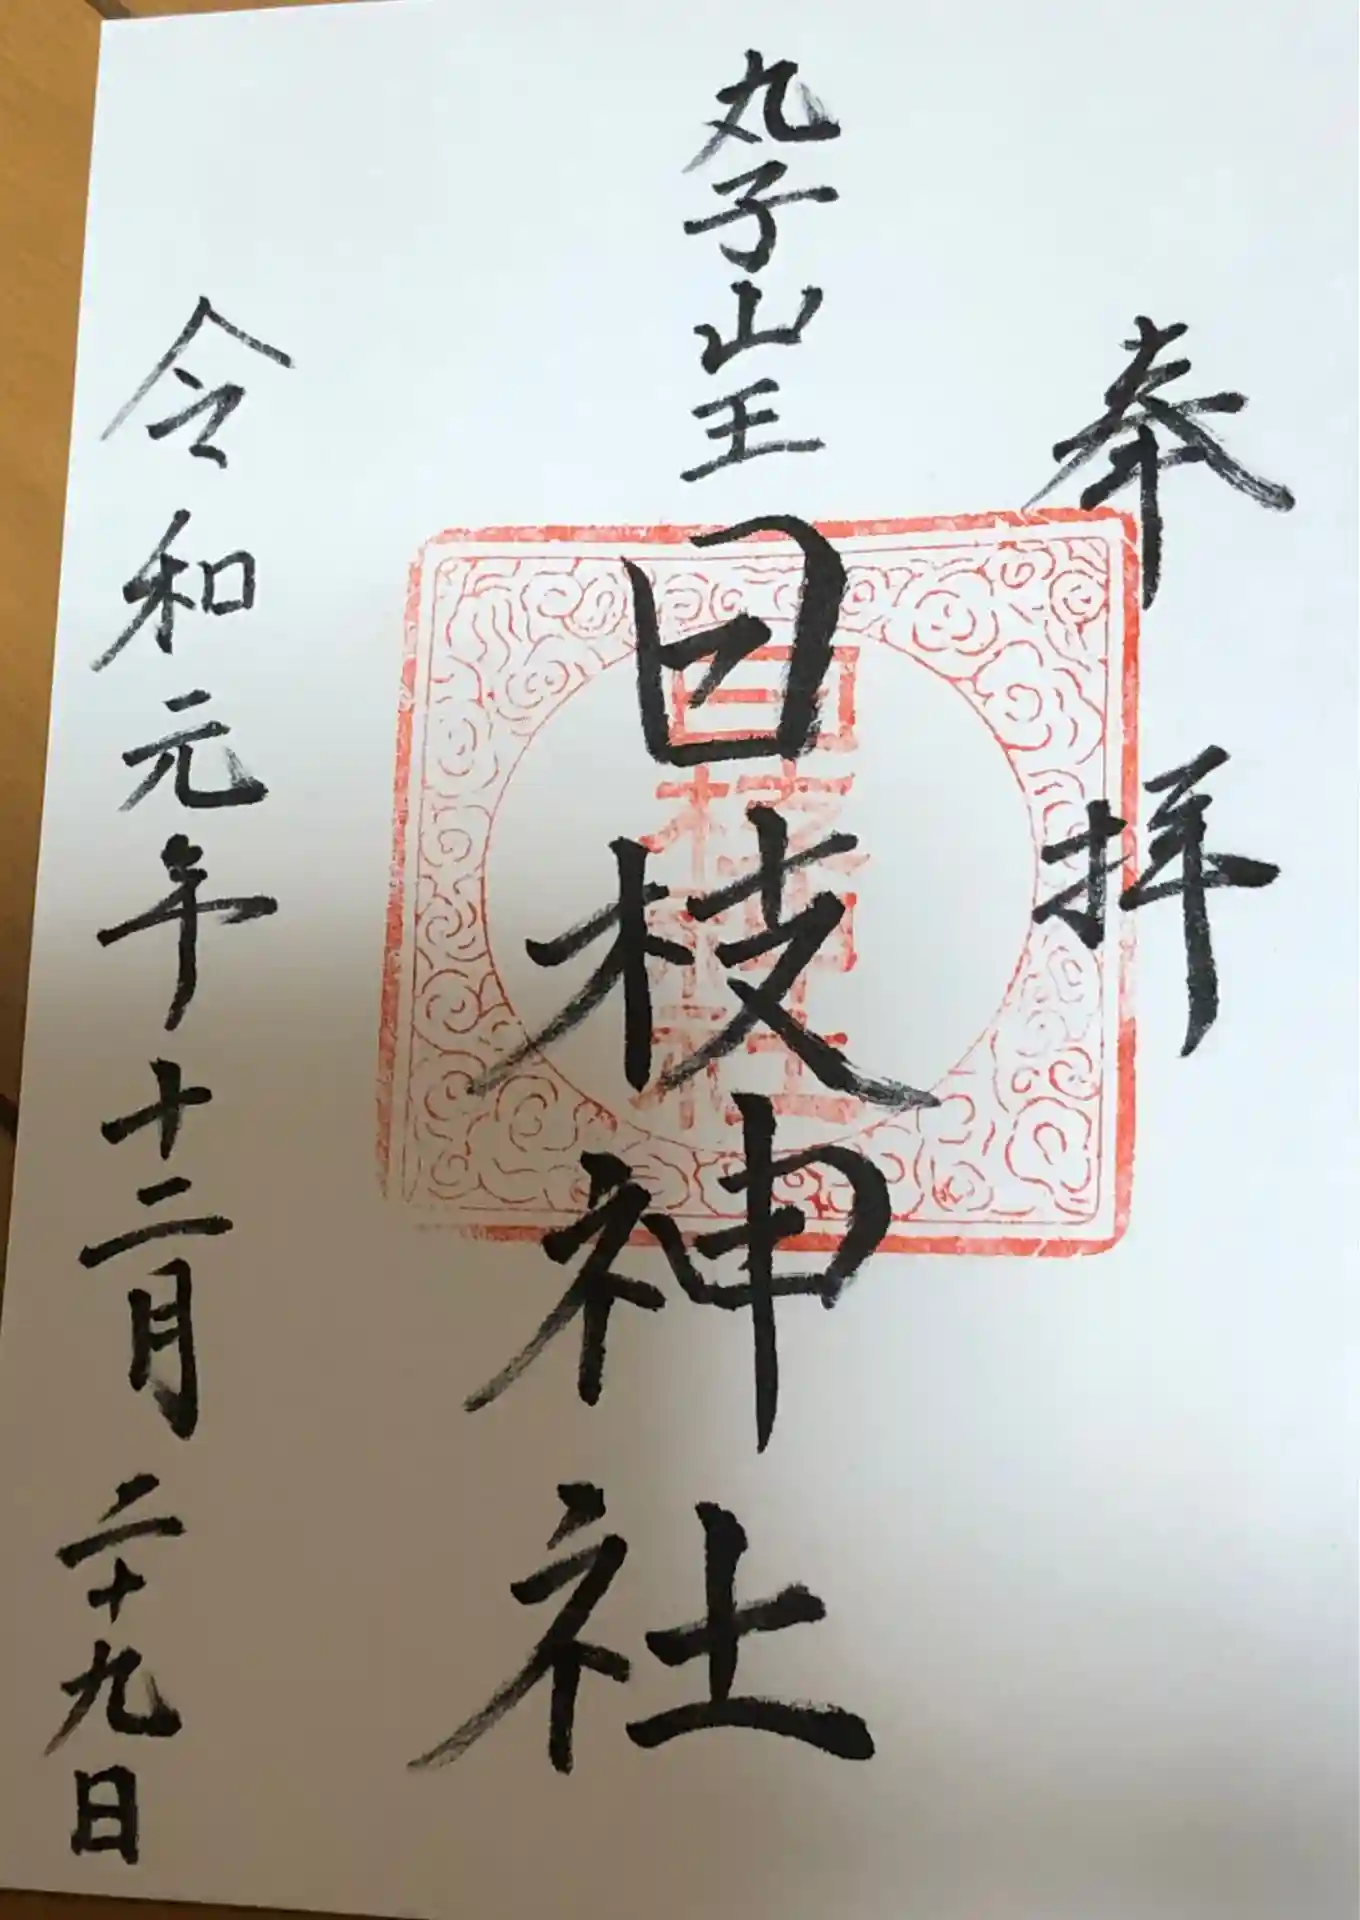 奉拝
丸子山王日枝神社
日枝神社
令和元年十二月二十九日